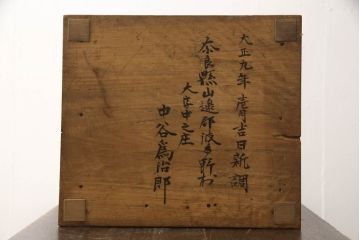 大正九年壹月吉日新調
奈良縣山邊郡波多野村
大字中之庄
中谷爲治郎